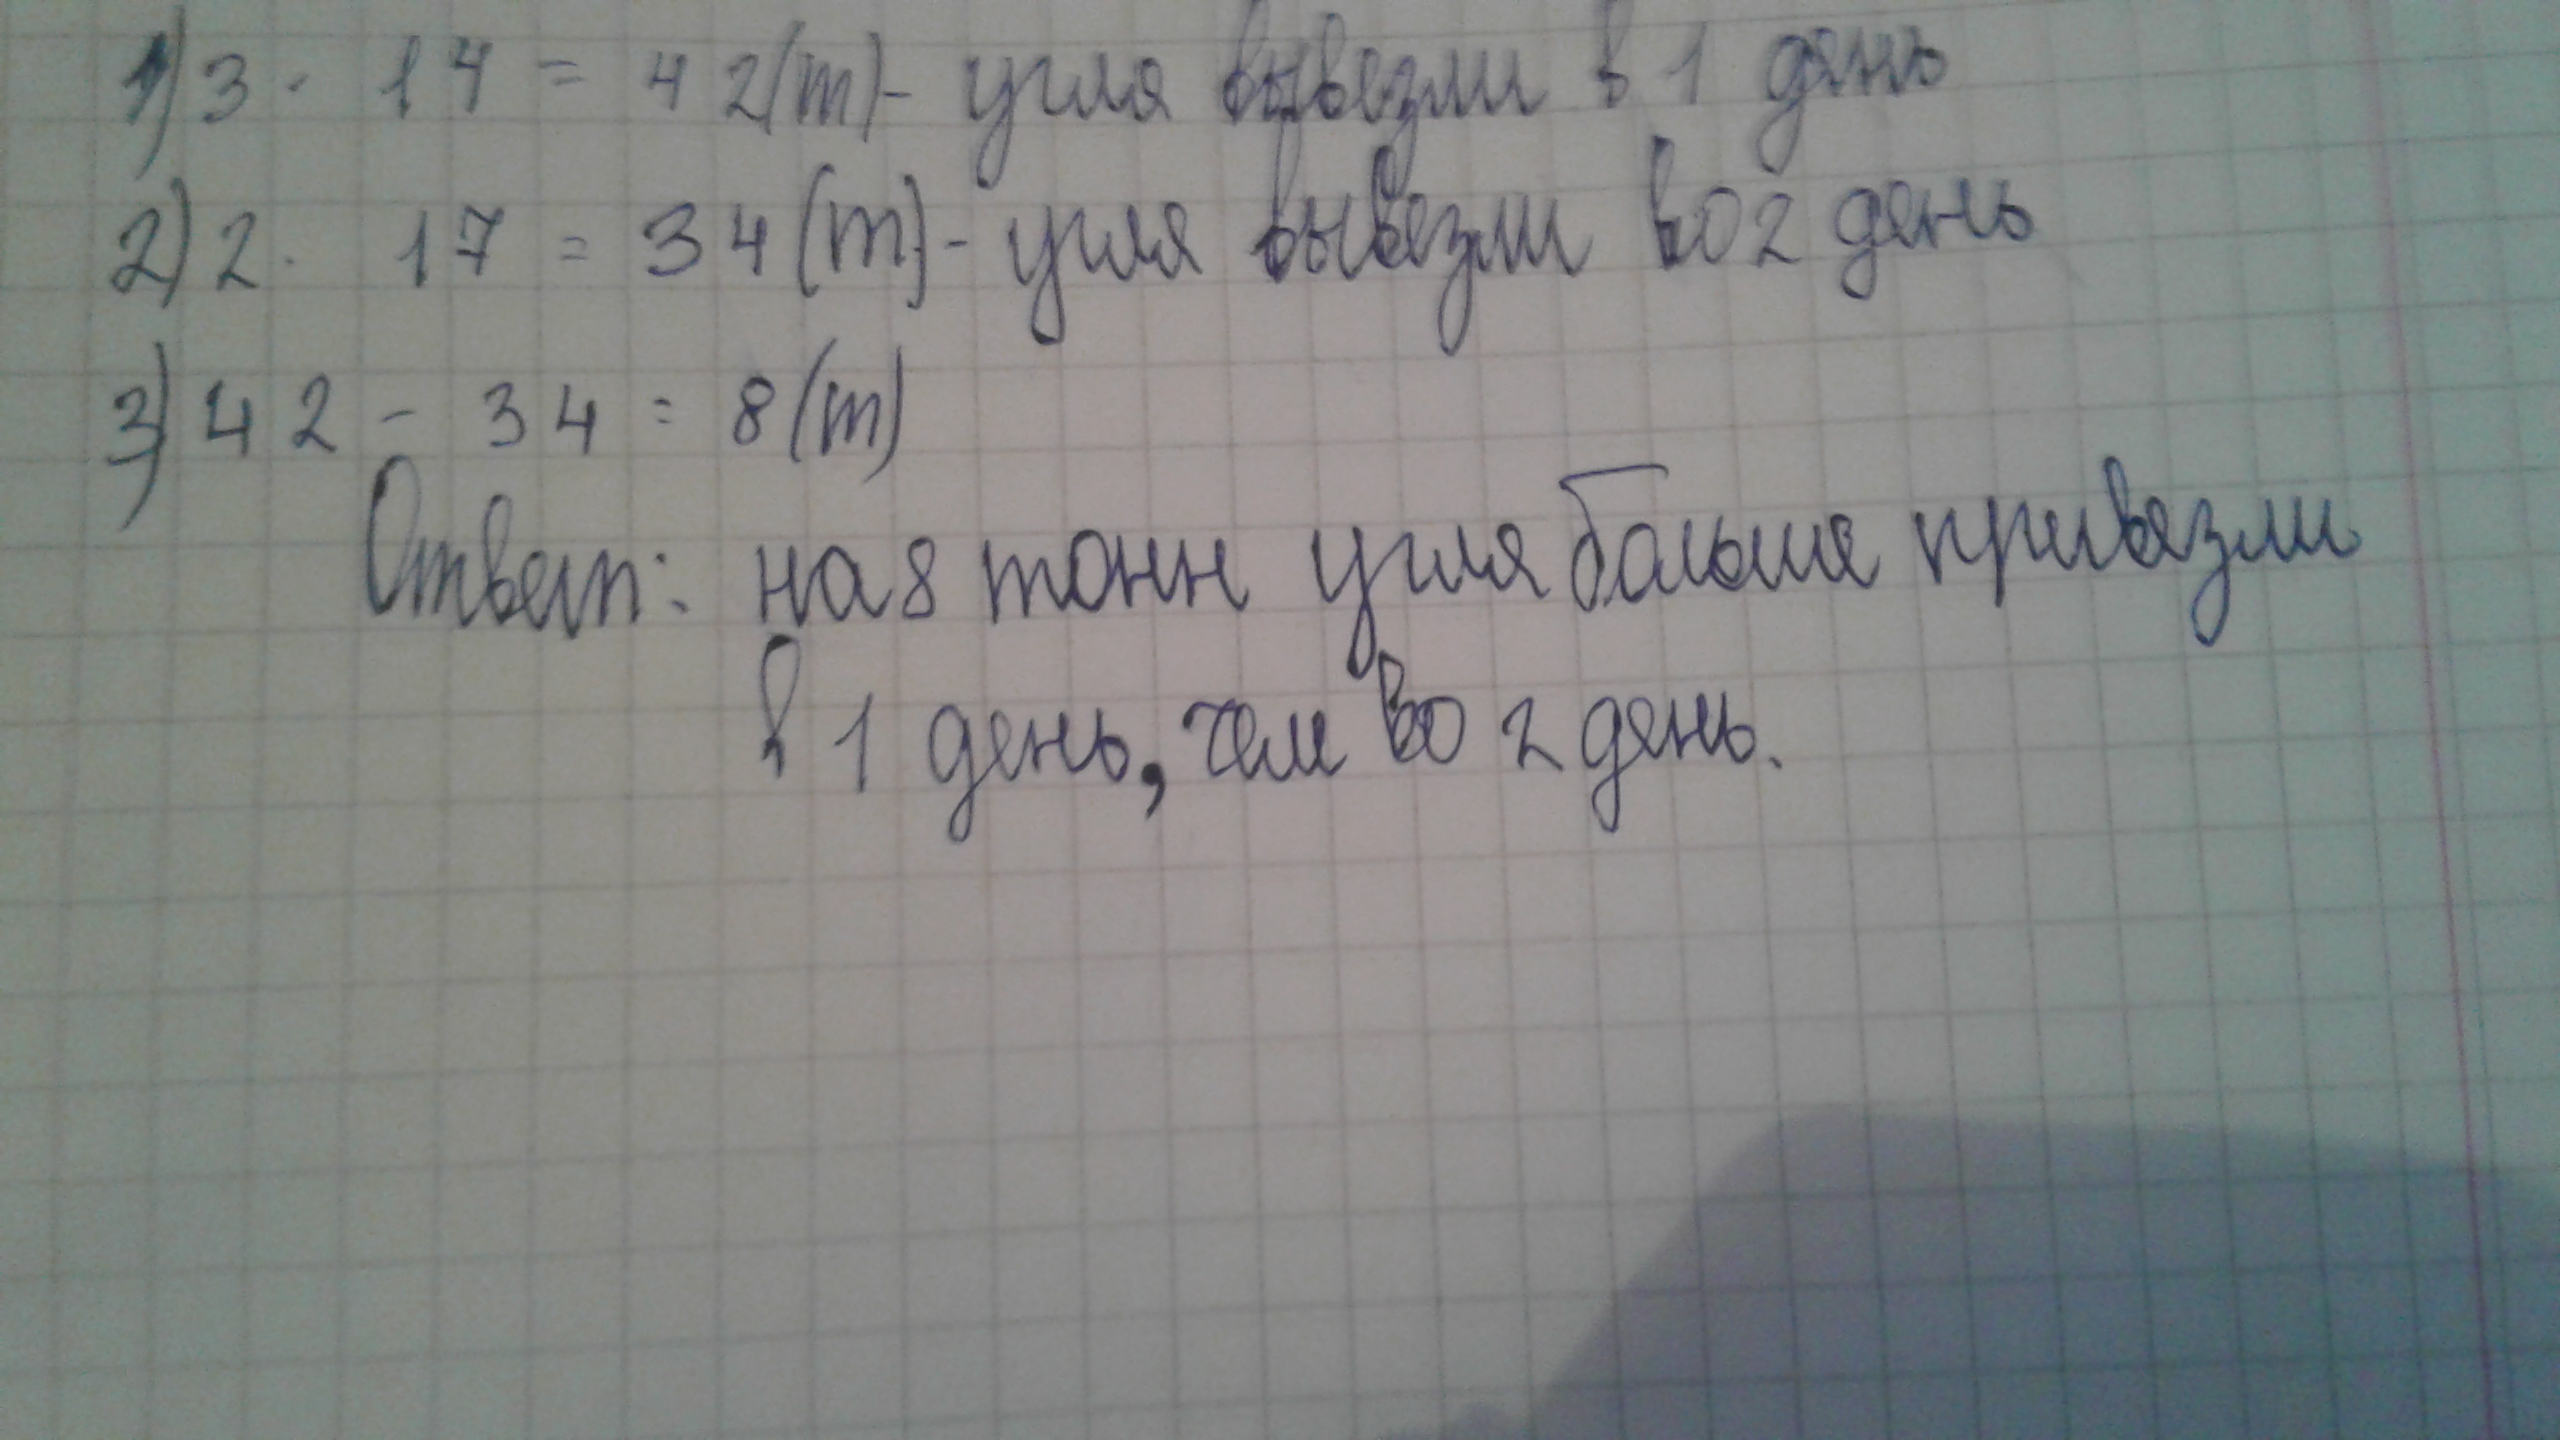 1) 3 · 14 = 42(т)- угля вывезли в 1 день
2) 2 · 17 = 34(т)- угля вывезли во 2 день
3) 42 - 34 = 8(т)
Ответ: на 8 тонн угля больше привезли
в 1 день, чем во 2 день.